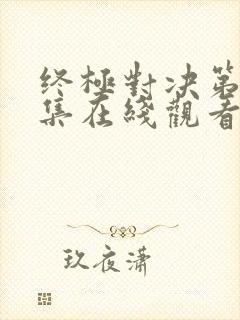 終極對決第
集在綫觀看
玖夜潇